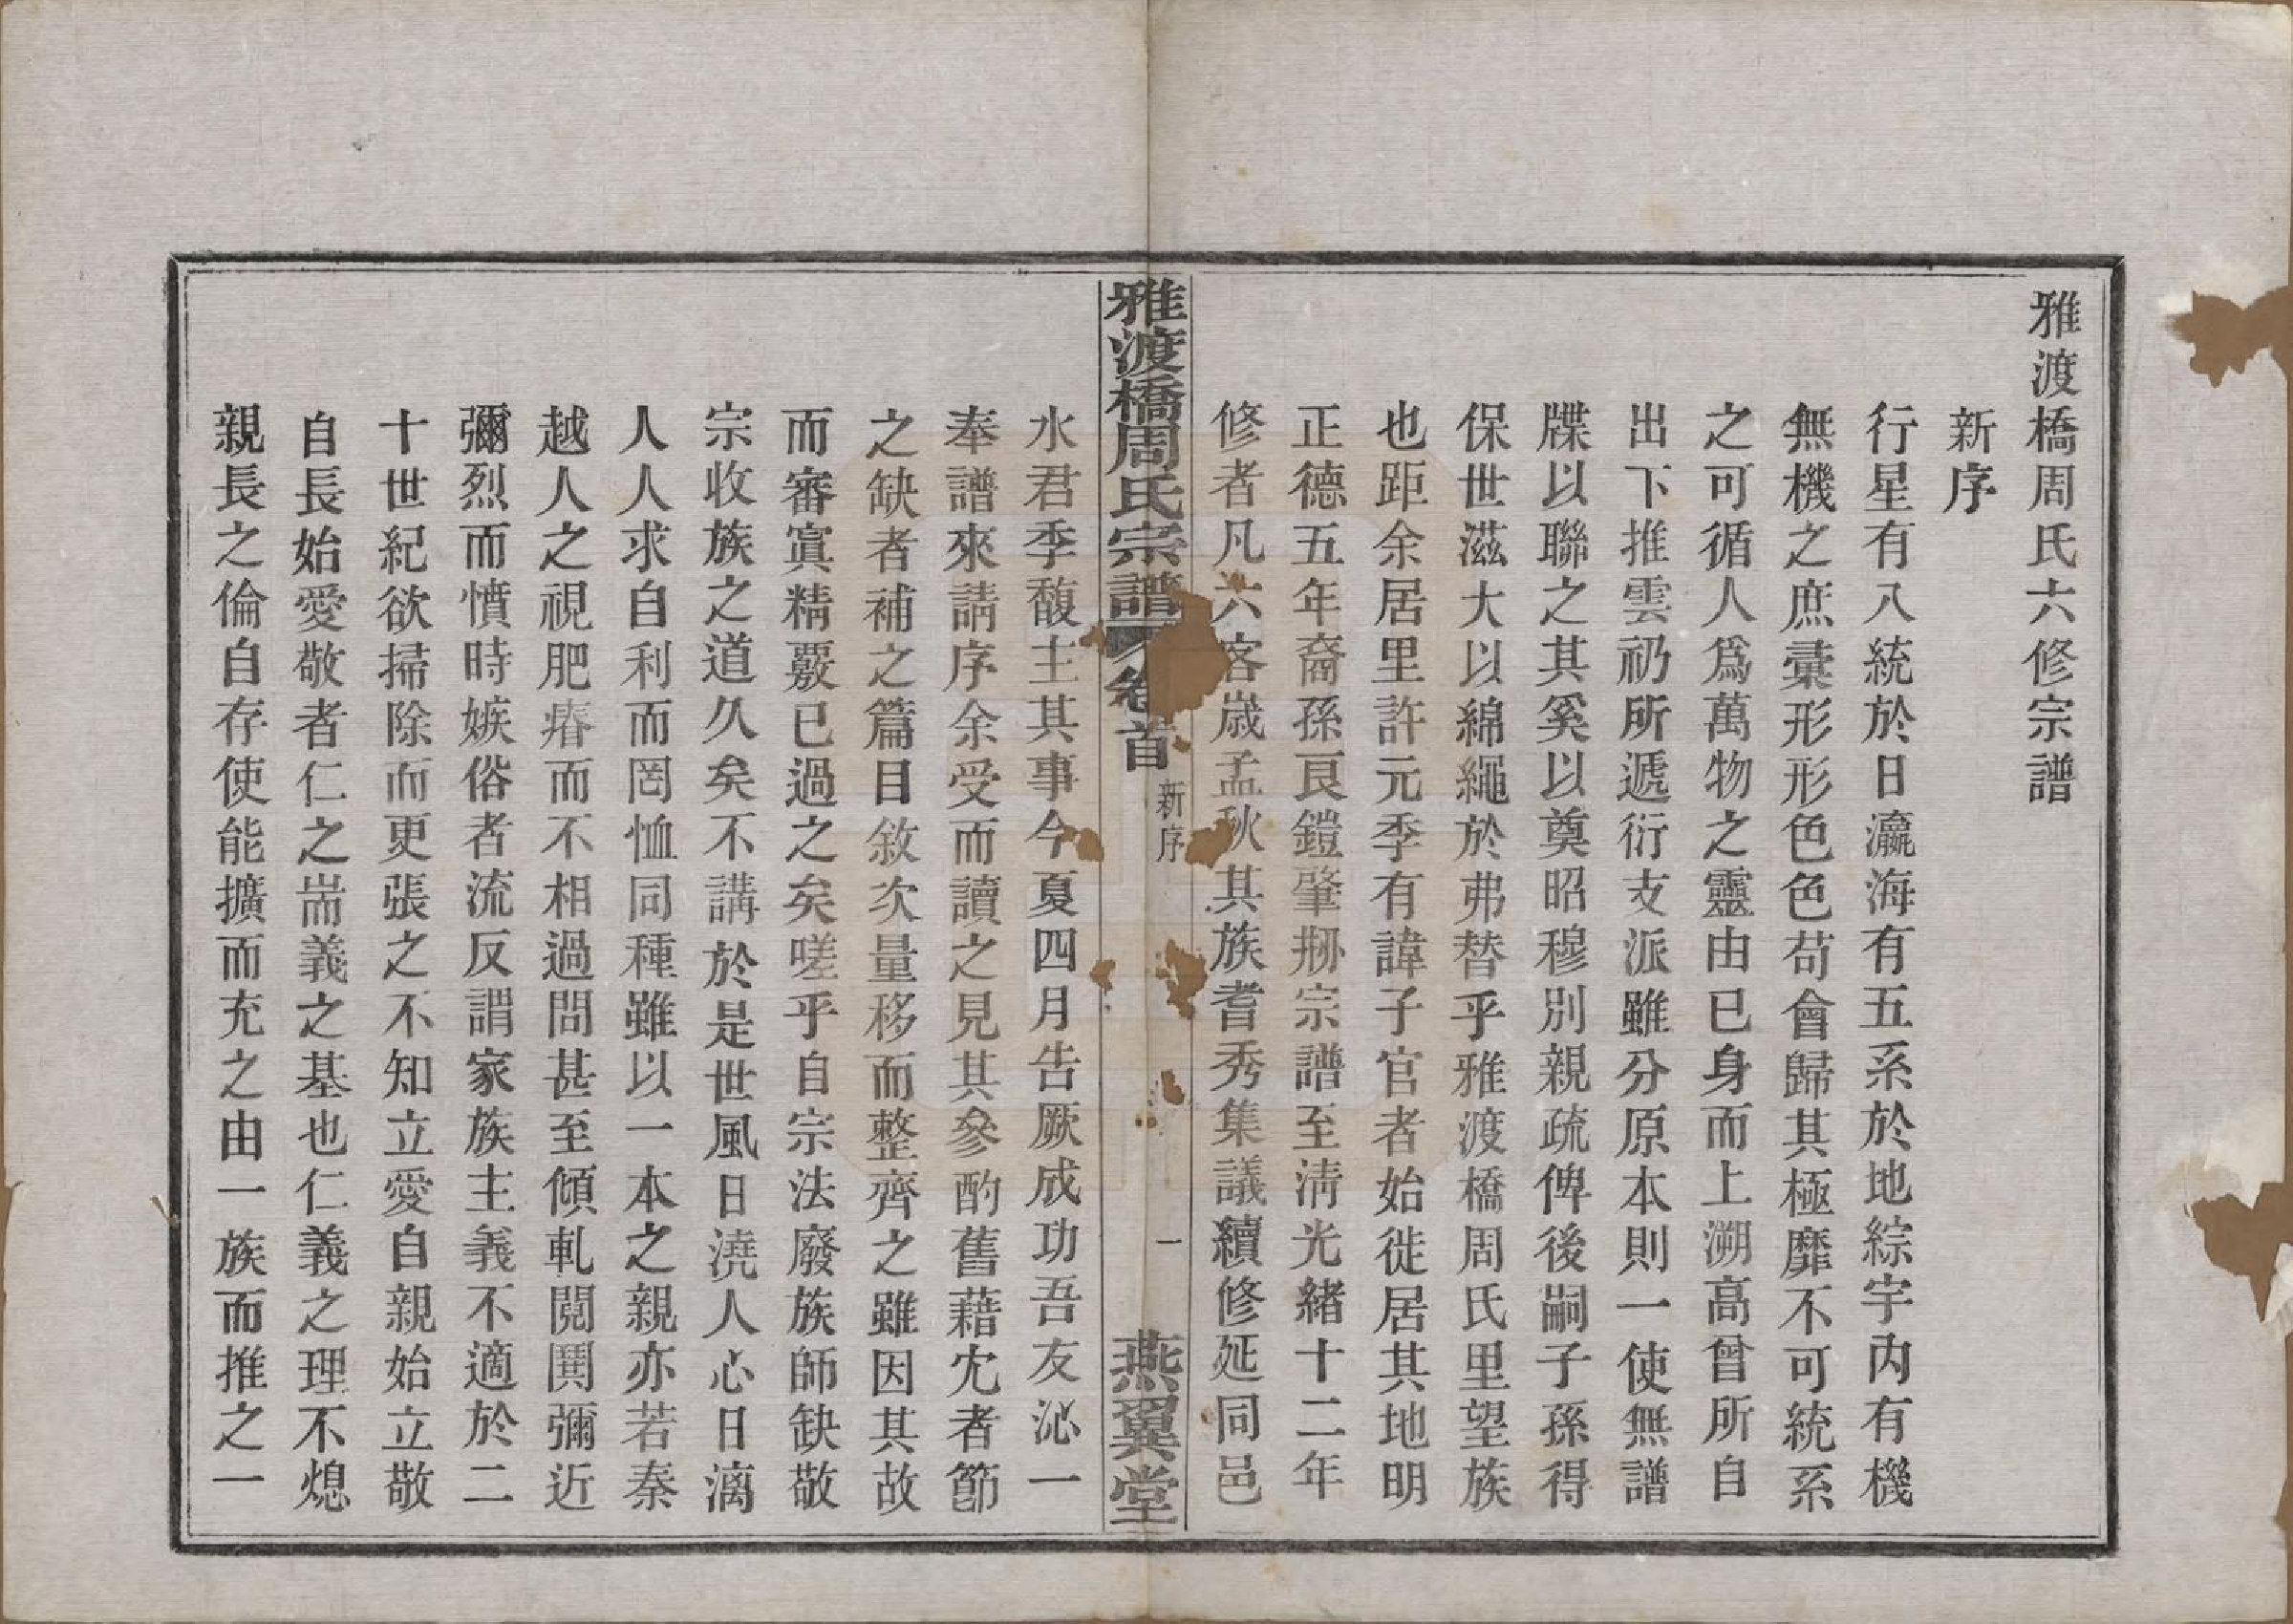 雅渡橋周氏六修宗譜
新序
行星有八統於日瀛海有五系於地綜宇內有機
無機之庶彙形形色色苟會歸其極靡不可統系
之可循人爲萬物之靈由已身而上溯高曾所自
出下推雲礽所遞衍支派雖分原本則一使無譜
牒以聯之其奚以奠昭穆別親疏俾後嗣子孫得
保世滋大以綿繩於弗替乎雅渡橋周氏里望族
也距余居里許元季有諱子官者始徙居其地明
正德五年裔孫艮鎧肇刱宗譜至淸光緒十二年
修者凡六客歲孟秋其族耆秀集議續修延同邑
雅渡橋周氏宗譜
卷首
新序
一
燕翼堂
水君季馥主其事今夏四月告厥成功吾友沁一
奉譜來請序余受而讀之見其參酌舊藉宂者節
之缺者補之篇目敘次量移而整齊之雖因其故
而審寘精覈已過之矣嗟乎自宗法廢族師缺敬
宗收族之道久矣不講於是世風日澆人心日漓
人人求自利而罔恤同種雖以一本之親亦若秦
越人之視肥瘠而不相過問甚至傾軋鬩鬨彌近
彌烈而憤時嫉俗者流反謂家族主義不適於二
十世紀欲掃除而更張之不知立愛自親始立敬
自長始愛敬者仁之耑義之基也仁義之理不熄
親長之倫自存使能擴而充之由一族而推之一